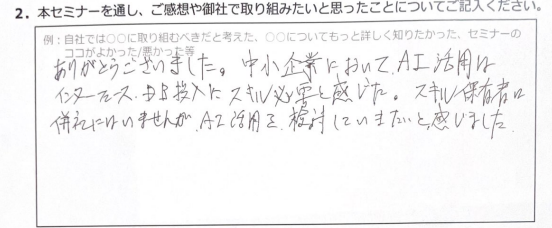 2. 本セミナーを通し、ご感想や御社で取り組みたいと思ったことについてご記入ください。
例：自社では○○に取り組むべきだと考えた、○○についてもっと詳しく知りたかった、セミナーの
ココがよかった/悪かった等
ありがとうございました。中小企業において、AI活用は
インターフェース・DB投入にスキル必要と感じた。スキル保有者は
弊社にはいませんが、AI活用を検討していきたいと感じました